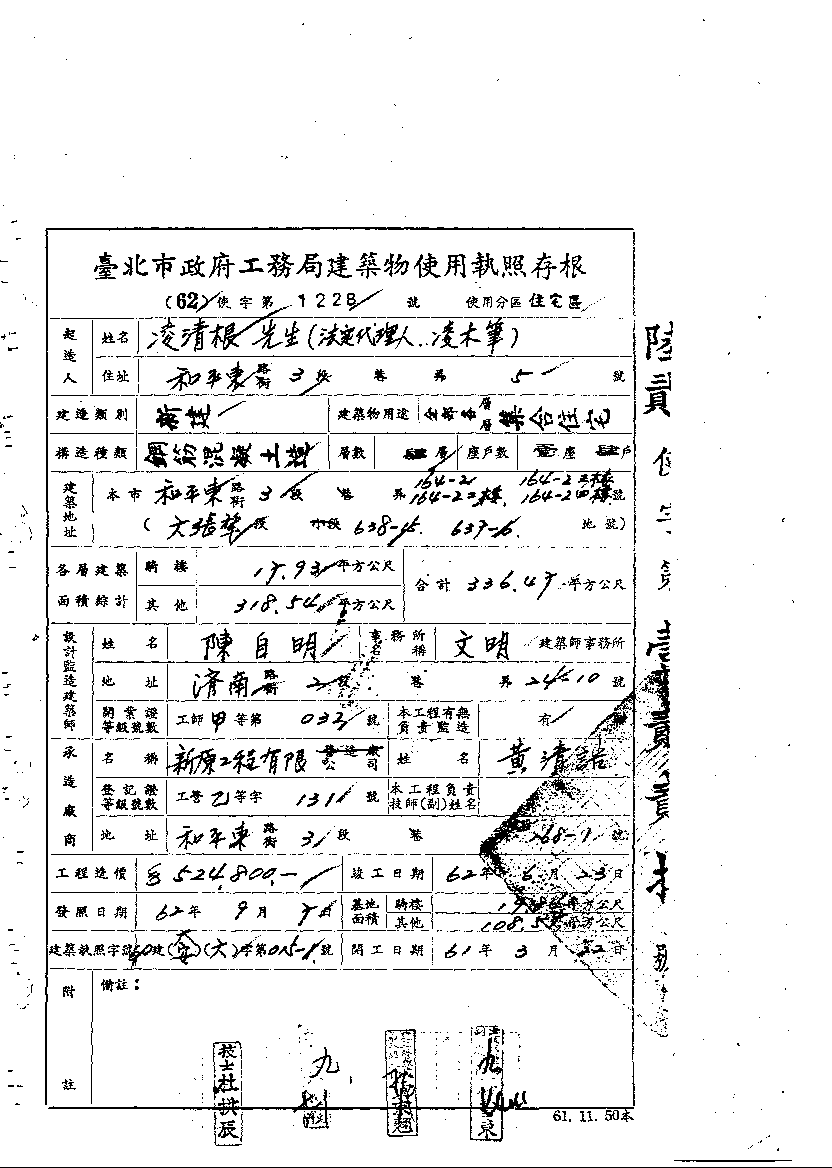 臺北市政府工務局建築物使用執照存根
(62)使字第 1228 號 使用分區 住宅區
起造人 姓名 凌清根 先生(法定代理人..凌木筆)
住址 和平東路街 3段 巷 弄 5 號
建造類別 新建 建築物用途 全部各層層 集合住宅
構造種類 鋼筋混凝土造 層數 層 座戶數 座 戶
建築地址 本市 和平東路街 3段 巷 弄 164-2 164-2二樓. 164-2三樓 164-2四樓 號
( 段 小段 638-15. 637-16. 地號)
各層建築面積綜計 騎樓 17.93 平方公尺 合計 336.47 平方公尺
其他 318.54 平方公尺
設計監造建築師 姓名 陳自明 事務所名稱 文明 建築師事務所
地址 濟南路街 2段 巷 弄 24-10 號
開業證等級號數 工師甲等第 032 號 本工程有無負責監造 有
承造廠商 名稱 新原工程有限 營造廠公司 姓名 黃清
登記證等級號數 工營乙等字 1311 號 本工程負責技師(副)姓名
地址 和平東路街 3段 巷 168-1 號
工程造價 $524,800.- 竣工日期 62年 6月 23日
發照日期 62年 9月 7日 基地面積 騎樓 平方公尺
其他 108.5 平方公尺
建築執照字號 60建( )(大)字第015-1號 開工日期 61年 3月 22日
附註 備註:
技士杜拱辰
61.11.50本
陸貳 使字第 壹貳貳 號